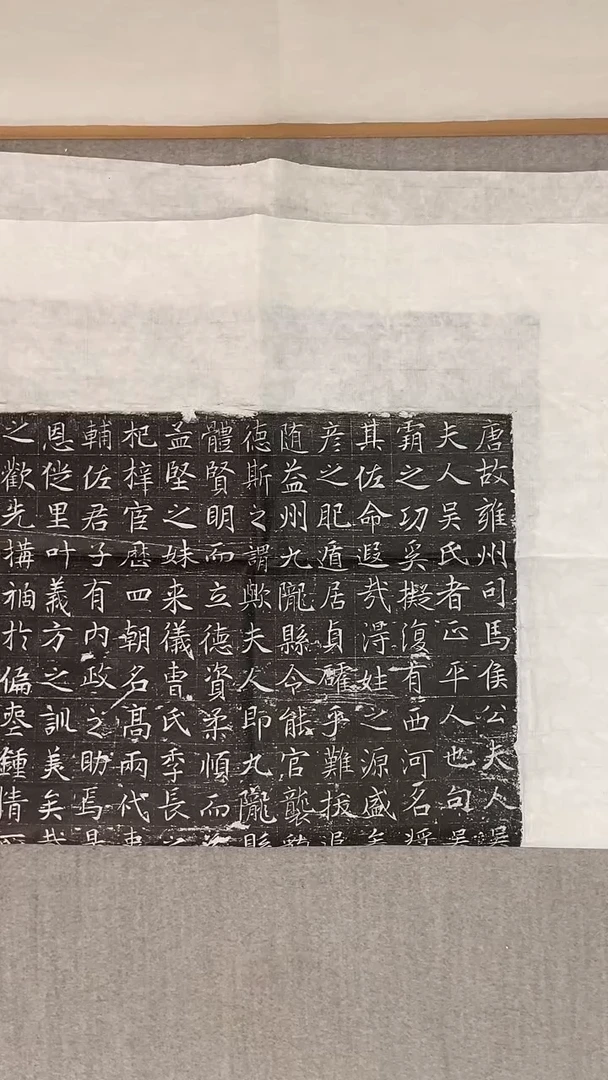 唐故雍州司馬侯公夫人吳
夫人吳氏者正平人也句吳
霸之功奚擬復有西河名將
其佐命遐哉淂姓之源盛矣
彦之肥遁居貞確乎難拔
随益州九隴縣令能官襲
德斯之謂歟夫人即九隴縣
體賢明而立德資柔順而
孟堅之妹来儀曹氏季長之
杞梓宦歷四朝名高兩代
輔佐君子有内政之助焉
恩従里叶義方之訓美矣
之歡先搆禍於偏壑鍾情